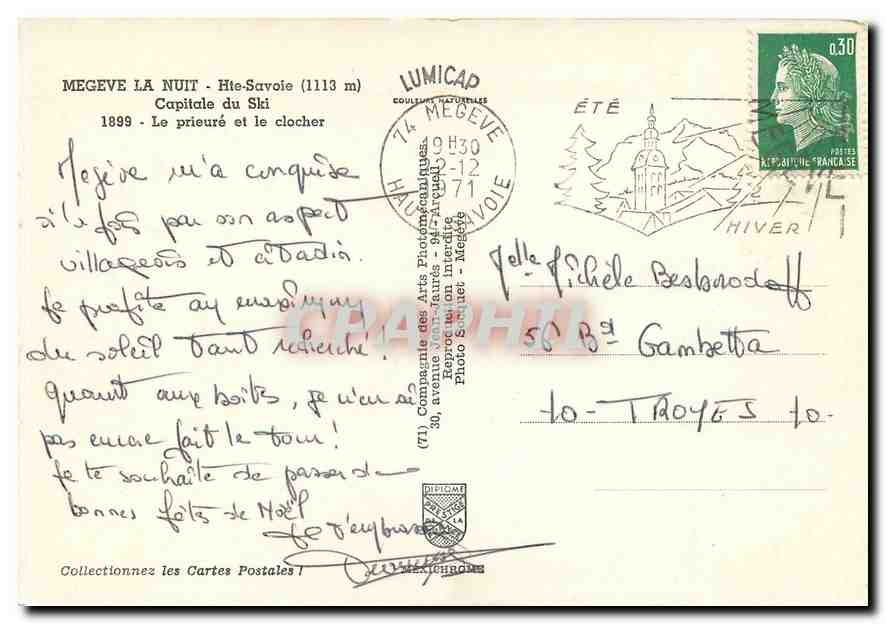 MEGEVE LA NUIT - Hte-Savoie (1113 m)
Capitale du Ski
1899 - Le prieuré et le clocher
Megève m'a conquise
à la fois par son aspect
villageois et citadin.
Je profite au maximum
du soleil tant recherché!
Quant aux boîtes, je n'en ai
pas encore fait le tour!
Je te souhaite de passer de
bonnes fêtes de Noël
Je t'embrasse
Collectionnez les Cartes Postales !
LUMICAP
COULEURS NATURELLES
74 MEGEVE
19H30
2-12
1971
HAUTE-SAVOIE
(71) Compagnie des Arts Photomécaniques
30, avenue Jean-Jaurès - 94 - Arcueil
Reproduction interdite
Photo Socquet - Megève
DIPLOME
PRESTIGE
DE LA
MEXICHROME
ÉTÉ
HIVER
0,30
POSTES
REPUBLIQUE FRANÇAISE
Melle Michèle Besborodoff
56 Bd Gambetta
10 - TROYES 10 -
CPAPHIL